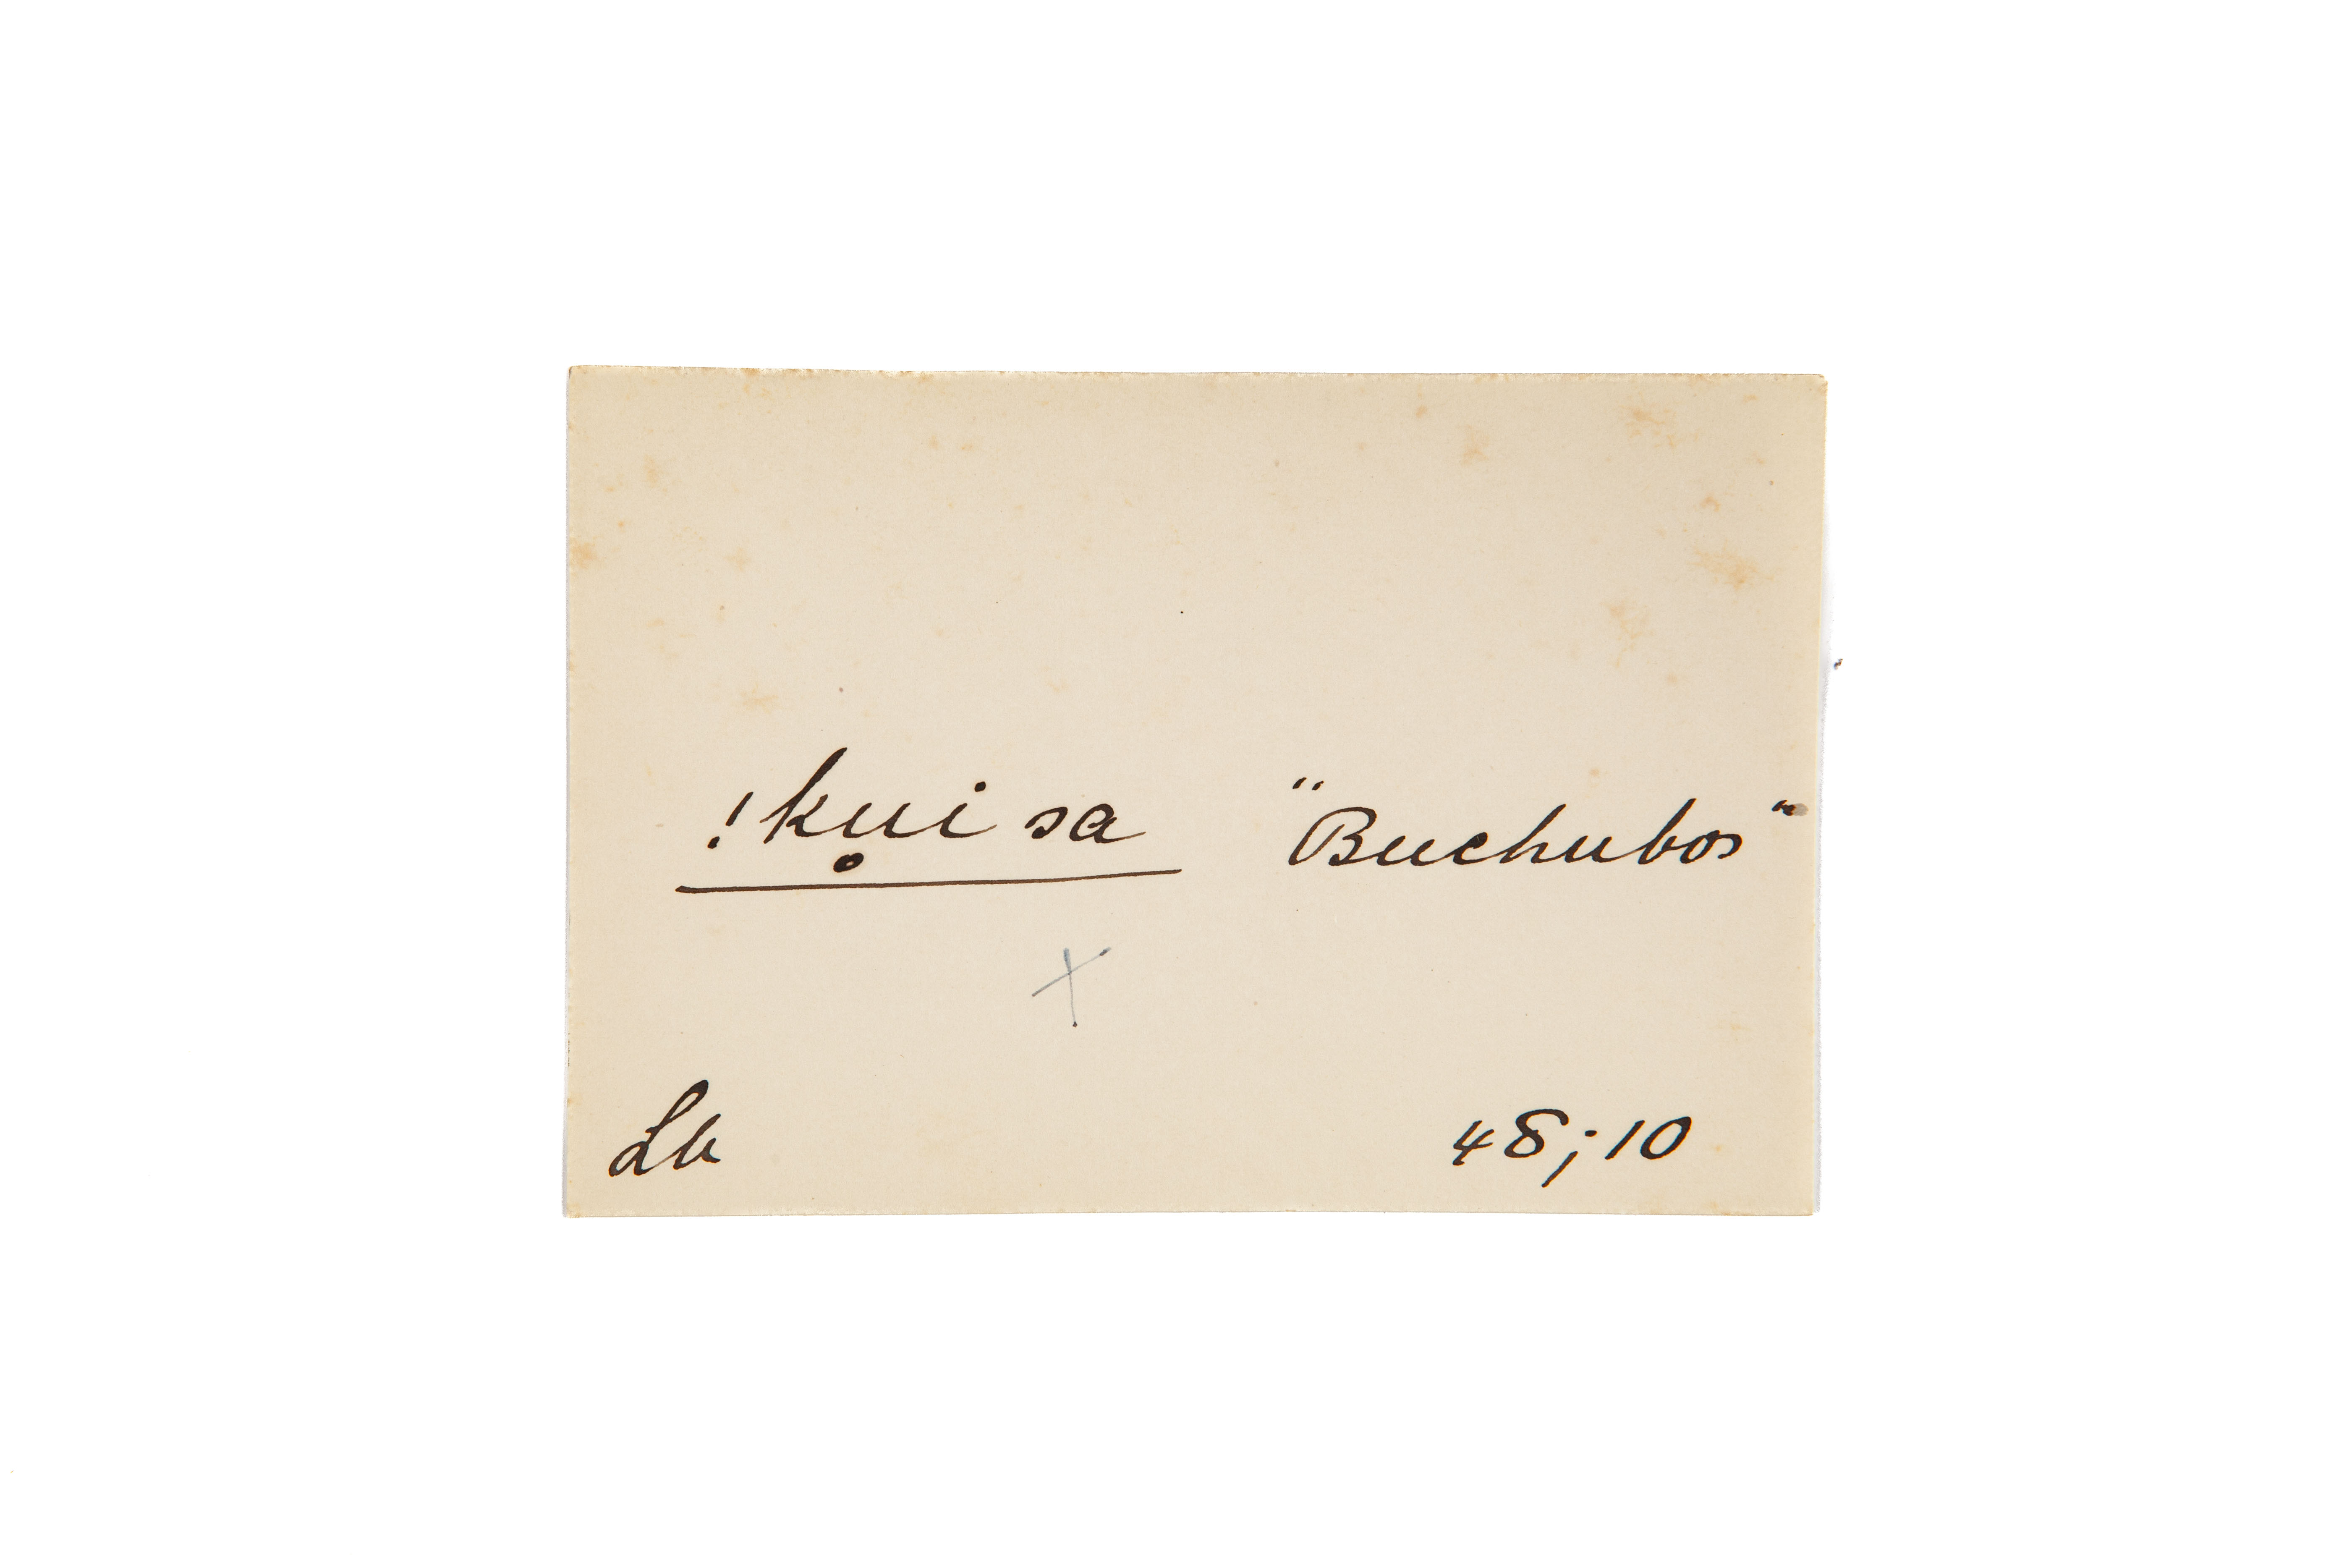 !kụi sa "Buchubos"
X
Lb 48;10